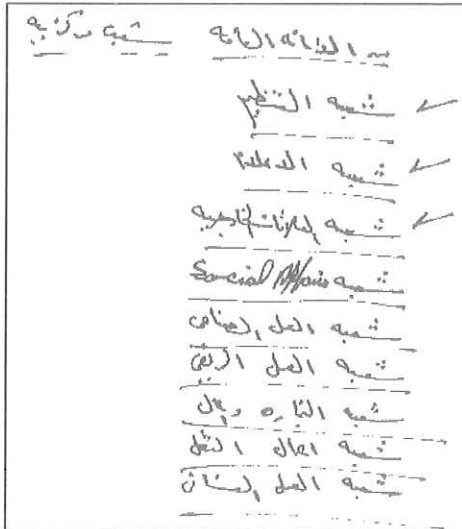 الامانة العامة شعب مركزية
شعبة التنظيم
شعبة الاعلام
شعبة العلاقات الخارجية
شعبة Social Affairs
شعبة العمل الصناعي
شعبة العمل الريفي
شعبة التجارة والمال
شعبة اعمال النقل
شعبة العمل